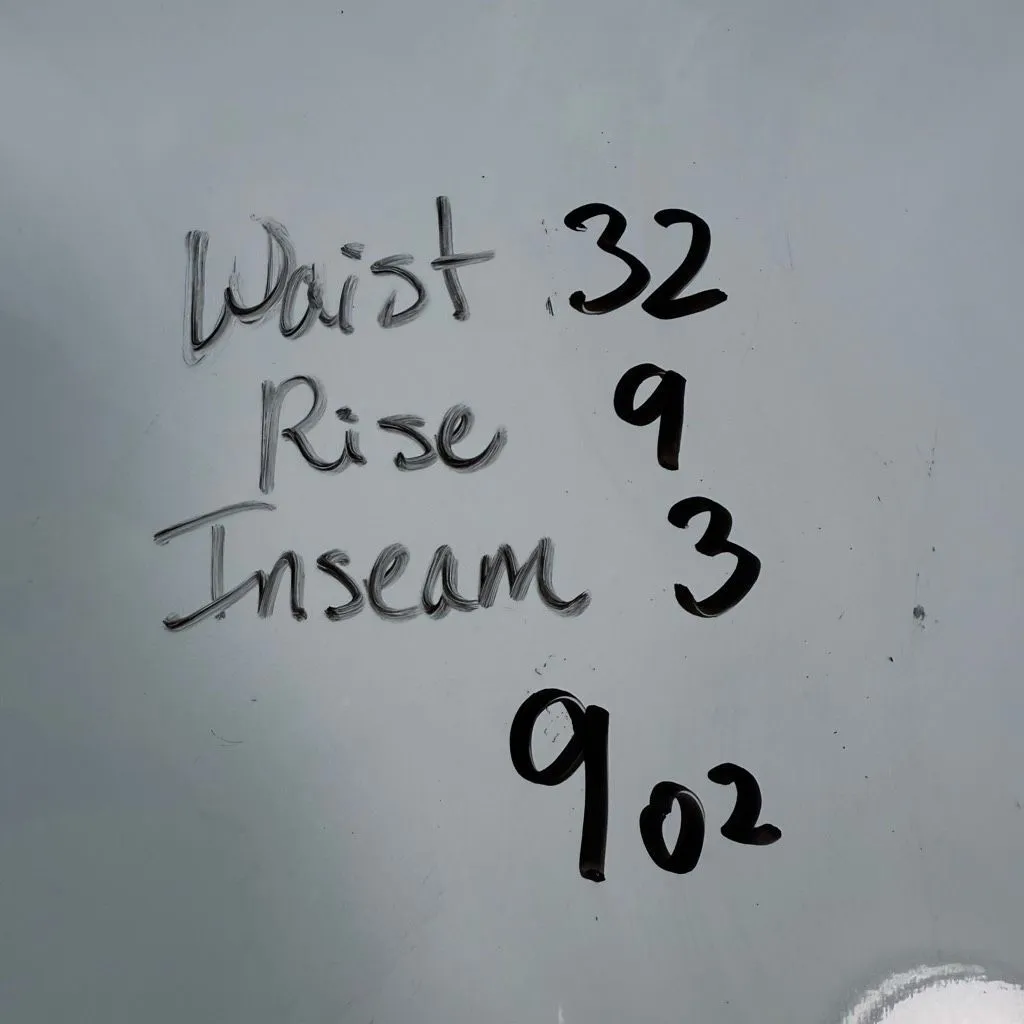 Waist 32
Rise 9
Inseam 3
9 02